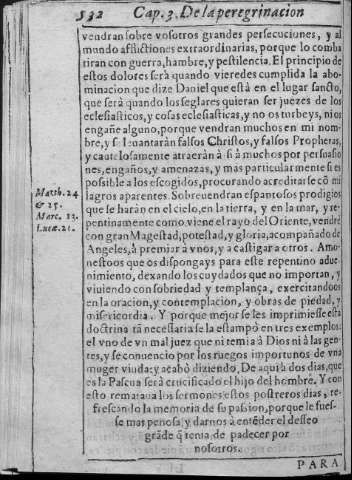 532 Cap. 3. De la peregrinacion
vendran sobre vosotros grandes persecuciones, y al
mundo afflictiones extraordinarias, porque lo comba
tiran con guerra, hambre, y pestilencia. El principio de
estos dolores serà quando vieredes cumplida la abo-
minacion que dize Daniel que està en el lugar sancto,
que serà quando los seglares quieran ser juezes de los
ecclesiasticos, y cosas eclesiasticas, y no os turbeys, ni os
engañe alguno, porque vendran muchos en mi nom-
bre, y se leuantaràn falsos Christos, y falsos Prophetas,
y cautelosamente atraeràn à si à muchos por persuasio
nes, engaños, y amenazas, y mas particularmente si es
possible a los escogidos, procurando acreditarse cõ mi
lagros aparentes. Sobreuendran espantosos prodigios
que se haràn en el cielo, en la tierra, y en la mar, y re-
pentinamente como viene el rayo del Oriente, vendrè
con gran Magestad, potestad, y gloria, acompañado de
Angeles, à premiar à vnos, y a castigar a otros. Amo-
nestoos que os dispongays para este repentino adue-
nimiento, dexando los cuydados que no importan, y
viuiendo con sobriedad y templança, exercitandoos
en la oracion, y contemplacion, y obras de piedad, y
misericordia. Y porque mejor se les imprimiesse esta
doctrina tã necessaria se la estampò en tres exemplos:
el vno de vn mal juez que ni temia à Dios ni à las gen-
tes, y se conuencio por los ruegos importunos de vna
muger viuda: y acabò diziendo, De aqui à dos dias, que
es la Pascua serà crucificado el hijo del hombre. Y con
esto remataua los sermones estos postreros dias, re-
frescando la memoria de su passion, porque le fues-
se mas penosa: y darnos à entẽder el desseo
grãde q̃ tenia de padecer por
nosotros.
Matth. 24
& 25.
Marc. 13.
Lucæ. 21.
PARA